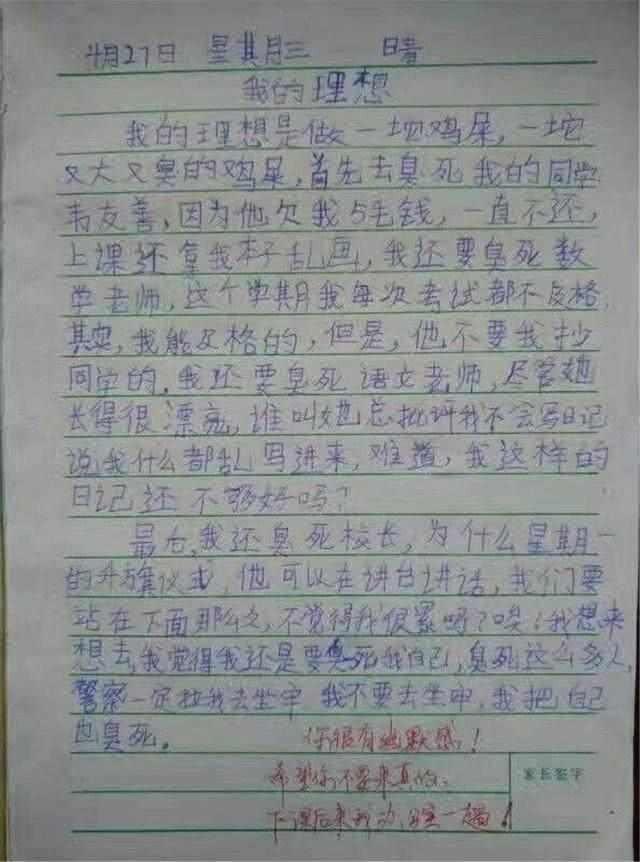 4月27日 星其月三 晴
我的理想
我的理想是做一坨鸡屎，一坨
又大又臭的鸡屎，首先去臭死我的同学
韦友善，因为他欠我5毛钱，一直不还，
上课还拿我本子乱画，我还要臭死数
学老师，这个学期我每次考试都不及格，
其实，我能及格的，但是，他不要我抄
同学的，我还要臭死语文老师，尽管她
长得很漂亮，谁叫她总批评我不会写日记
说我什么都乱写进来，难道，我这样的
日记还不够好吗？
最后，我还臭死校长，为什么星期一
的升旗仪式，他可以在讲台讲话，我们要
站在下面那么久，不觉得我很累吗？唉！我想来
想去，我觉得我还是要臭死我自己，臭死这么多人，
警察一定拉我去坐牢 我不要去坐牢，我把自己
也臭死。
你很有幽默感！
希望你不要来真的。
下课后来我办公室一趟！
家长签字